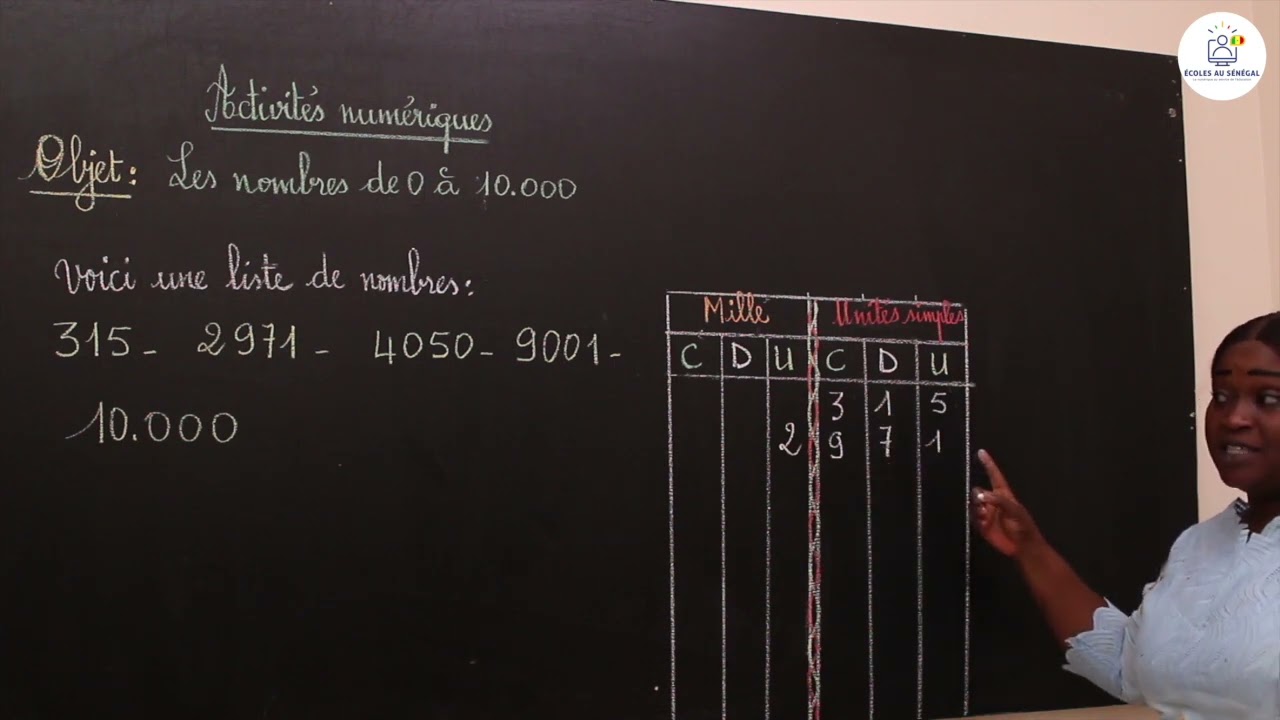 Activités numériques
Objet: Les nombres de 0 à 10.000
Voici une liste de nombres:
315 - 2971 - 4050 - 9001 -
10.000
Mille Unités simples
C D U C D U
3 1 5
2 9 7 1
ÉCOLES AU SÉNÉGAL